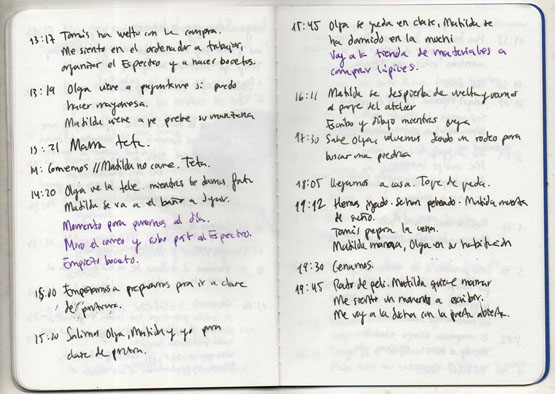 13:17 Tomás ha vuelto con la compra.
Me siento en el ordenador a trabajar,
organizar el Espectro y a hacer bocetos.
13:19 Olga viene a preguntarme si puedo
hacer mayonesa.
Matilda viene a que pele su manzana
13:21 Mamá teta.
14: Comemos // Matilda no come. Teta.
14:20 Olga ve la tele mientras
Matilda se va a el baño a jugar.
Momento para ponernos al día.
Miro el correo y subo post al Espectro.
Empiezo boceto.
15:00 Empezamos a prepararnos para ir a clase
de pintura.
15:20 Salimos Olga, Matilda y yo para
clase de pintura.
15:45 Olga se queda en clase, Matilda se
ha dormido en la mochi
Voy a la tienda de materiales a
comprar lápices.
16:11 Matilda se despierta de vuelta y vamos
al parque del atelier
Escribo y dibujo mientras juega
17:30 Sale Olga, volvemos dando un rodeo para
buscar una piedra
18:05 llegamos a casa. Tope de
19:12 Hemos jugado. Se han peleado. Matilda muerta
de sueño.
Tomás prepara la cena.
Matilda mama, Olga en su habitación
19:30 Cenamos.
19:45 Rato de peli. Matilda quiere mamar
Me siento un momento a escribir.
Me voy a la ducha con la puerta abierta.